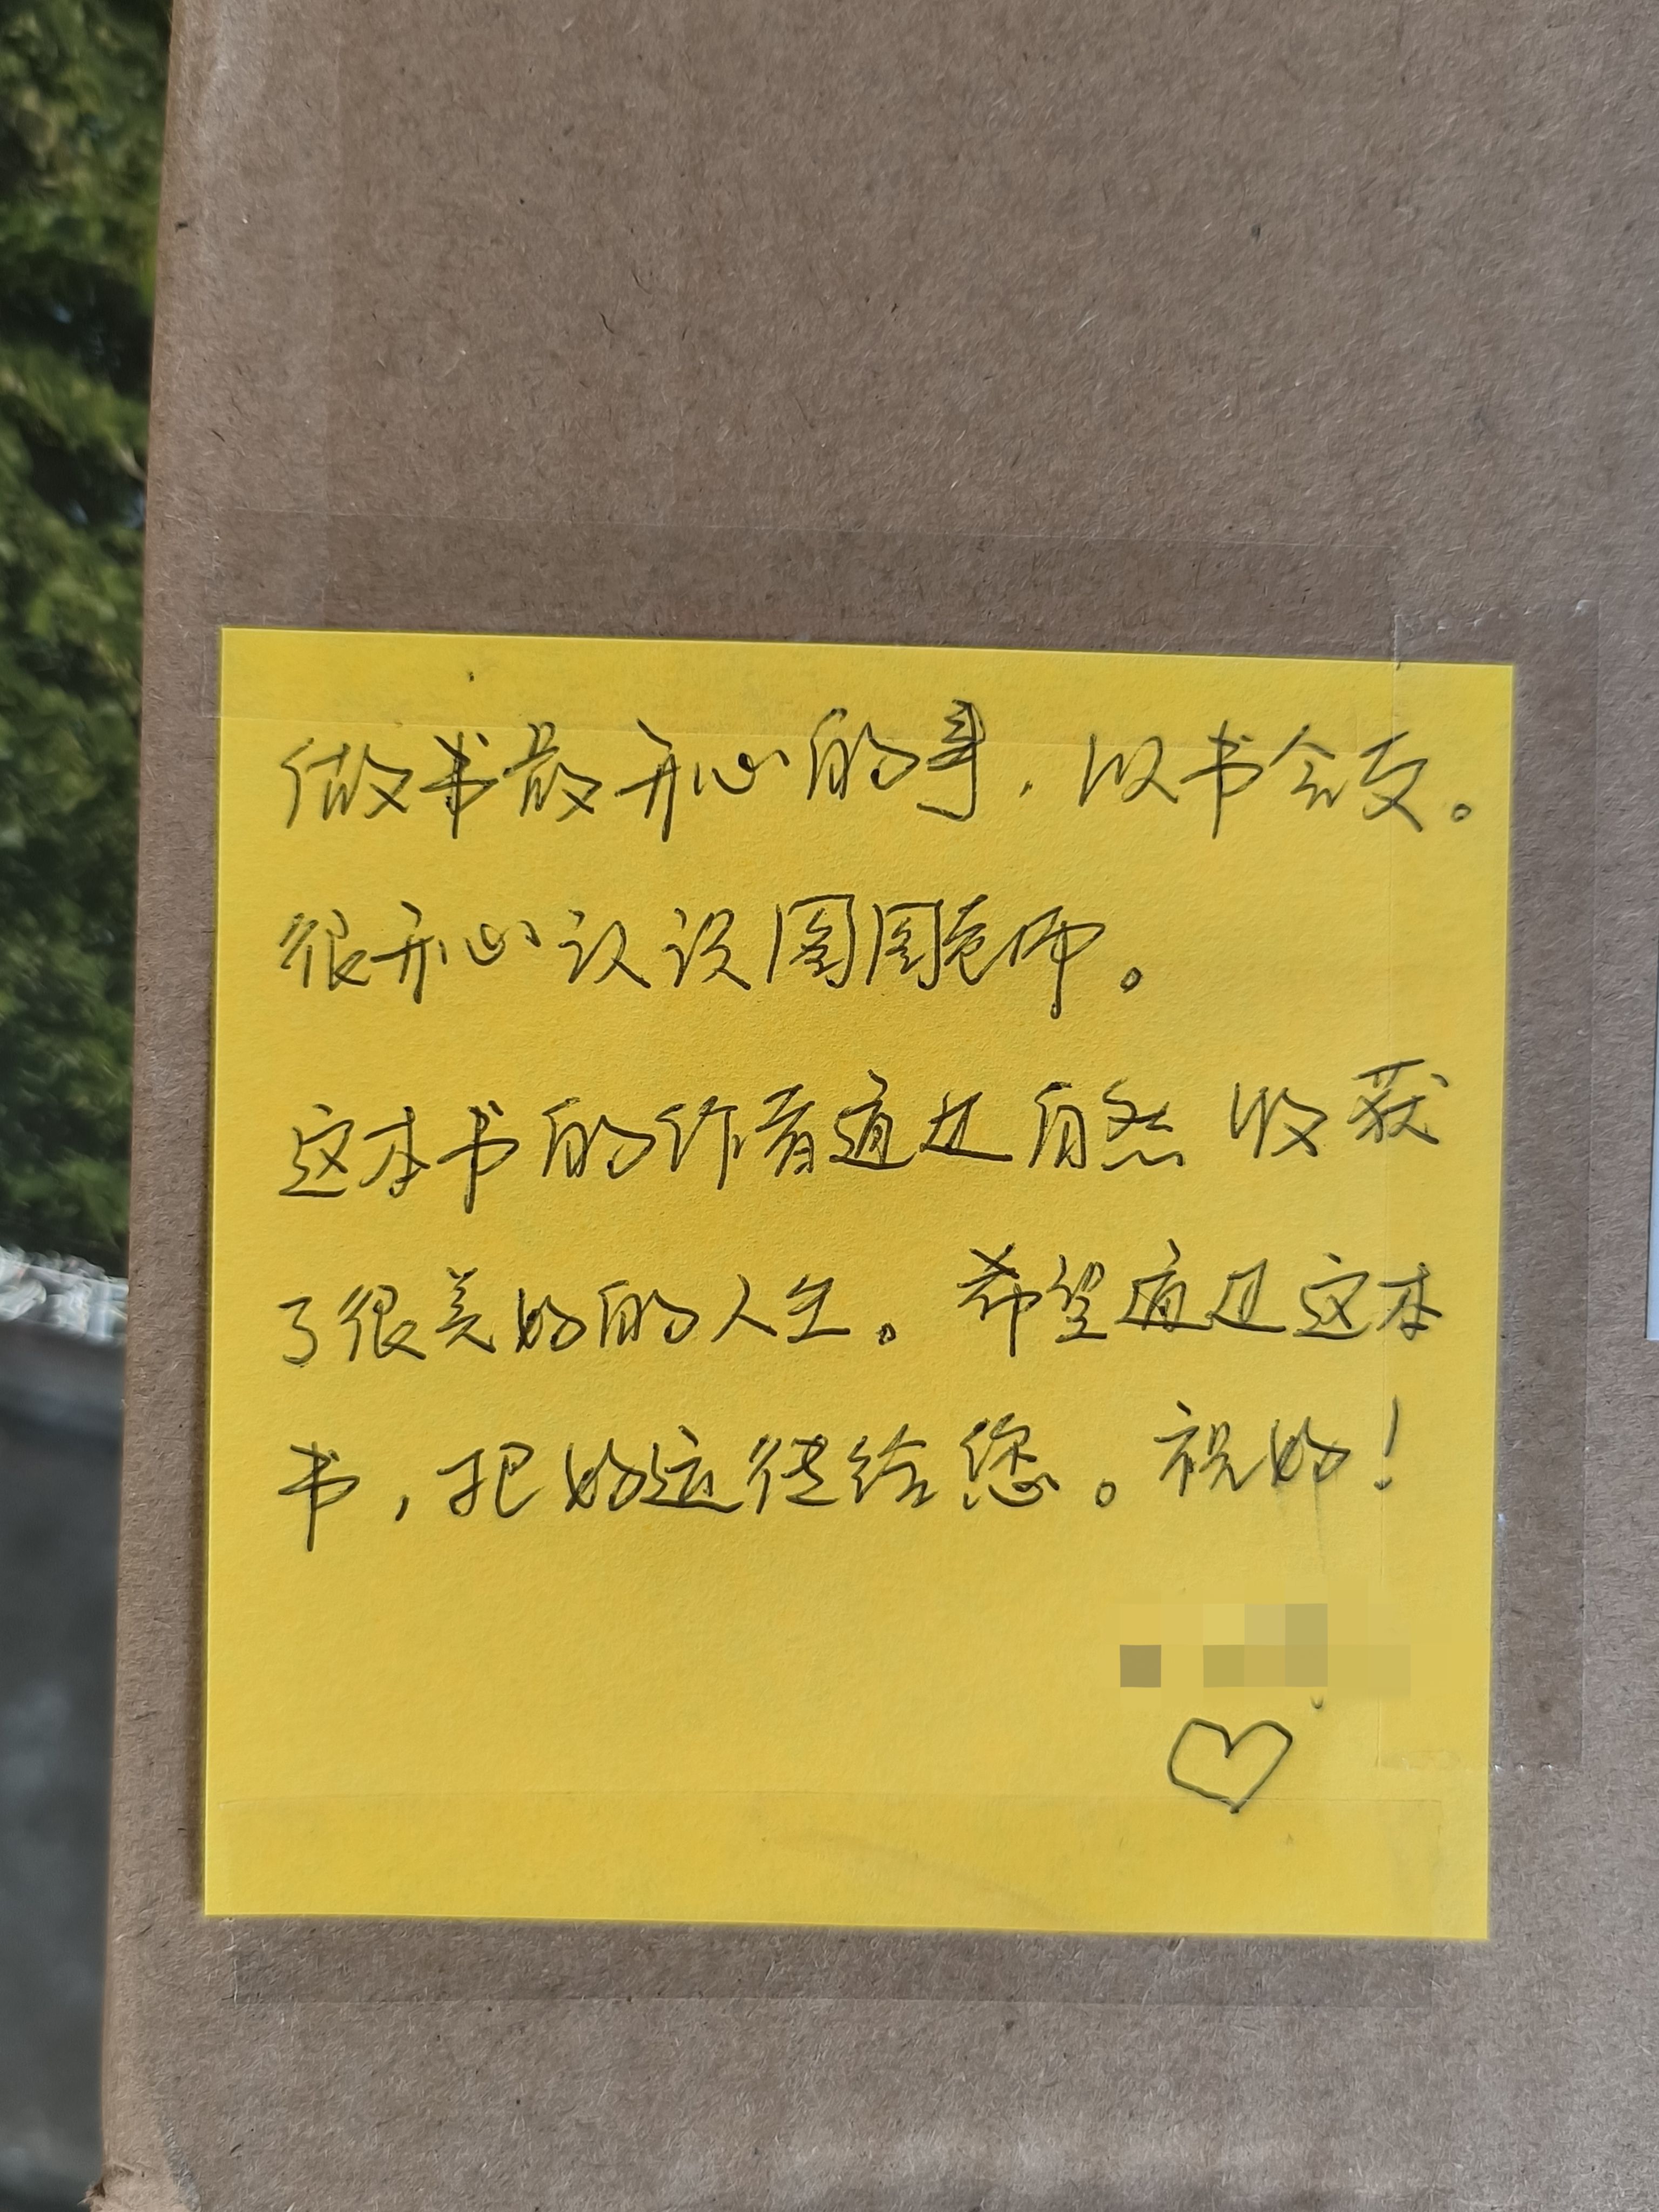 做书最开心的事，以书会友。
很开心认识图图老师。
这本书的作者通过自然 收获
了很美好的人生。希望通过这本
书，把好运传给您。祝好！